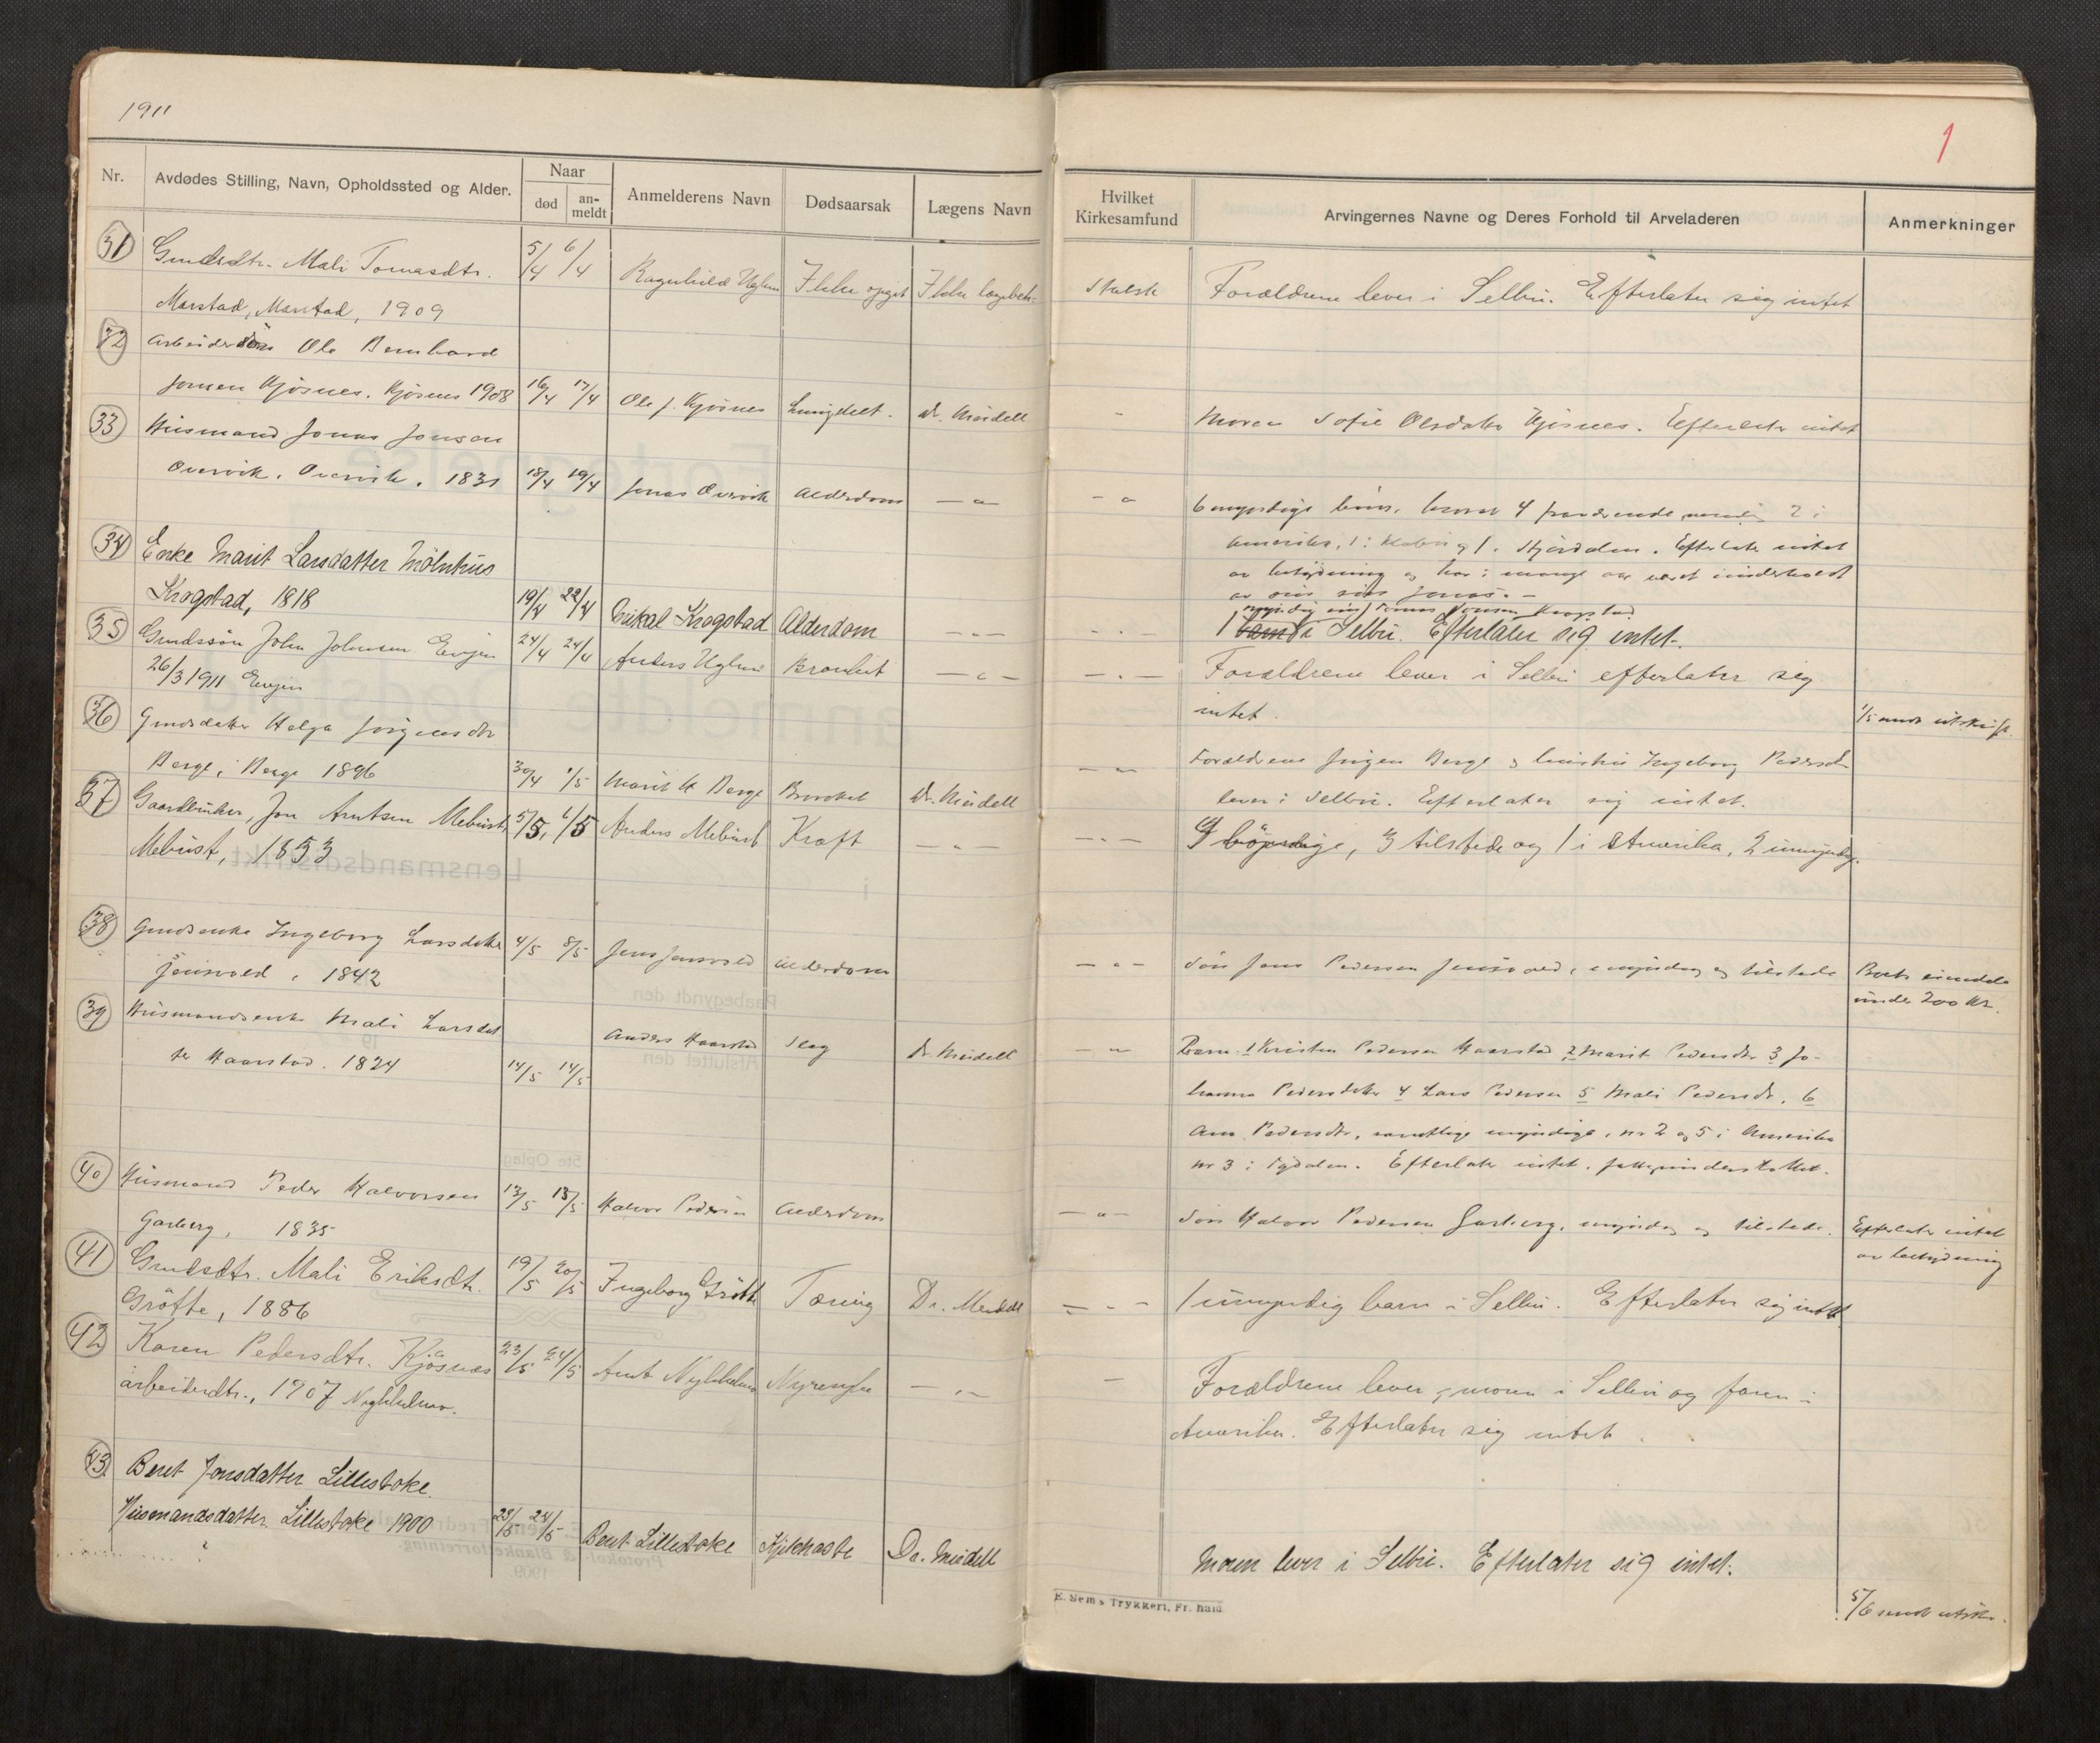 1911
1
Nr. Avdødes Stilling, Navn, Opholdssted og Alder. Naar død an-meldt Anmelderens Navn Dødsaarsak Lægens Navn Hvilket Kirkesamfund Arvingernes Navne og Deres Forhold til Arveladeren Anmerkninger
31 Grudsdtr. Mali Tomasdtr. 5/4 6/4 Ragnhild Uglem Ikke opgit Ikke lægebeh. Statsk Forældrene lever i Selbu. Efterlater sig intet
Marstad, Marstad, 1909
32 Arbeidersøn Ole Bernhard
Jonsen Kjøsnes. Kjøsnes 1908 16/4 17/4 Ole J. Kjøsnes Dr. Mindell Moren Sofie Olsdatter Kjøsnes. Efterlater intet
33 Husmand Jonas Jonsen
Overvik. Overvik. 1831 18/4 19/4 Jonas Overvik Alderdom — " — " 6 myndige børn, hvorav 4 fraværende, nemlig 2 i
Amerika, 1 i og 1 i Stjørdalen. Efterlater intet
av betydning og har i mange aar været underholdt
av sin søn Jonas. –
34 Enke Marit Larsdatter Mölnhus
Krogstad, 1818 19/4 22/4 Mikal Krogstad Alderdom — " — — " — 1 barn i Selbu. Efterlater sig intet.
myndig søn Tomas Jonsen Krogstad
35 Grudssøn John Johnsen Evjen 24/4 24/4 Anders Uglem Bronkit — " — — " — Forældrene lever i Selbu efterlater sig
26/3 1911 Evjen intet.
1/5 sendt utskrift.
36 Grudsdatter Helga Jørgensdtr
Berge, Berge 1896 30/4 1/5 Marit H Berge Dr. Mindell — " — Forældrene Jørgen Berge og hustru Ingeborg Pedersdtr
lever i Selbu. Efterlater sig intet.
37 Gaardbruker, Jon Arntsen Mebust, 5/5, 6/5 Anders Mebust Kræft — " — — " — myndige, 3 tilstede og 1 i Amerika, 2 umyndig.
Mebust, 1853
38 Grudsenke Ingeborg Larsdatter 4/5 8/5 Jens Jensvold Alderdom — " — Søn Jens Pedersen Jensvold, myndig og tilstede
Jensvold, 1842
Boets eiendele
under 200 Kr.
39 Husmandsenke Mali Larsdat
ter Haarstad. 1824 14/5 14/5 Anders Haarstad Slag Dr. Mindell — " — Barn: 1 Kristen Pedersen Haarstad 2 Marit Pedersdtr 3 Jo-
hanna Pedersdatter 4 Lars Pedersen 5 Mali Pedersdtr. 6
Ane Pedersdtr, samtlige myndige, nr 2 og 5 i Amerika
nr 3 i Tydalen. Efterlater intet. fattigunderstøttet.
40 Husmand Peder Halvorsen 13/5 15/5 Halvor Pedersen Alderdom — " — Søn Halvor Pedersen Garberg, myndig og tilstede.
Garberg, 1835
Efterlater intet
av betydning
41 Grudsdtr. Mali Eriksdtr. 19/5 20/5 Ingeborg Grötte Tæring Dr. Mindell — " — 1 umyndig barn i Selbu. Efterlater sig intet
Gröfte, 1886
42 Karen Pedersdtr. Kjøsnes 23/5 24/5 Arnt Nykkelmo — " — — Forældrene lever, moren i Selbu og faren i
arbeiderdtr., 1907 Nykkelmo. Amerika. Efterlater sig intet.
43 Beret Jonsdatter Lillestoke.
Husmandsdatter. Lillestoke 1900 23/5 24/5 Beret Lillestoke Kikhoste Dr. Mindell Moren lever i Selbu. Efterlater sig intet.
5/6 sendt utskr.
E. Sem's Trykkeri, Fr.hald